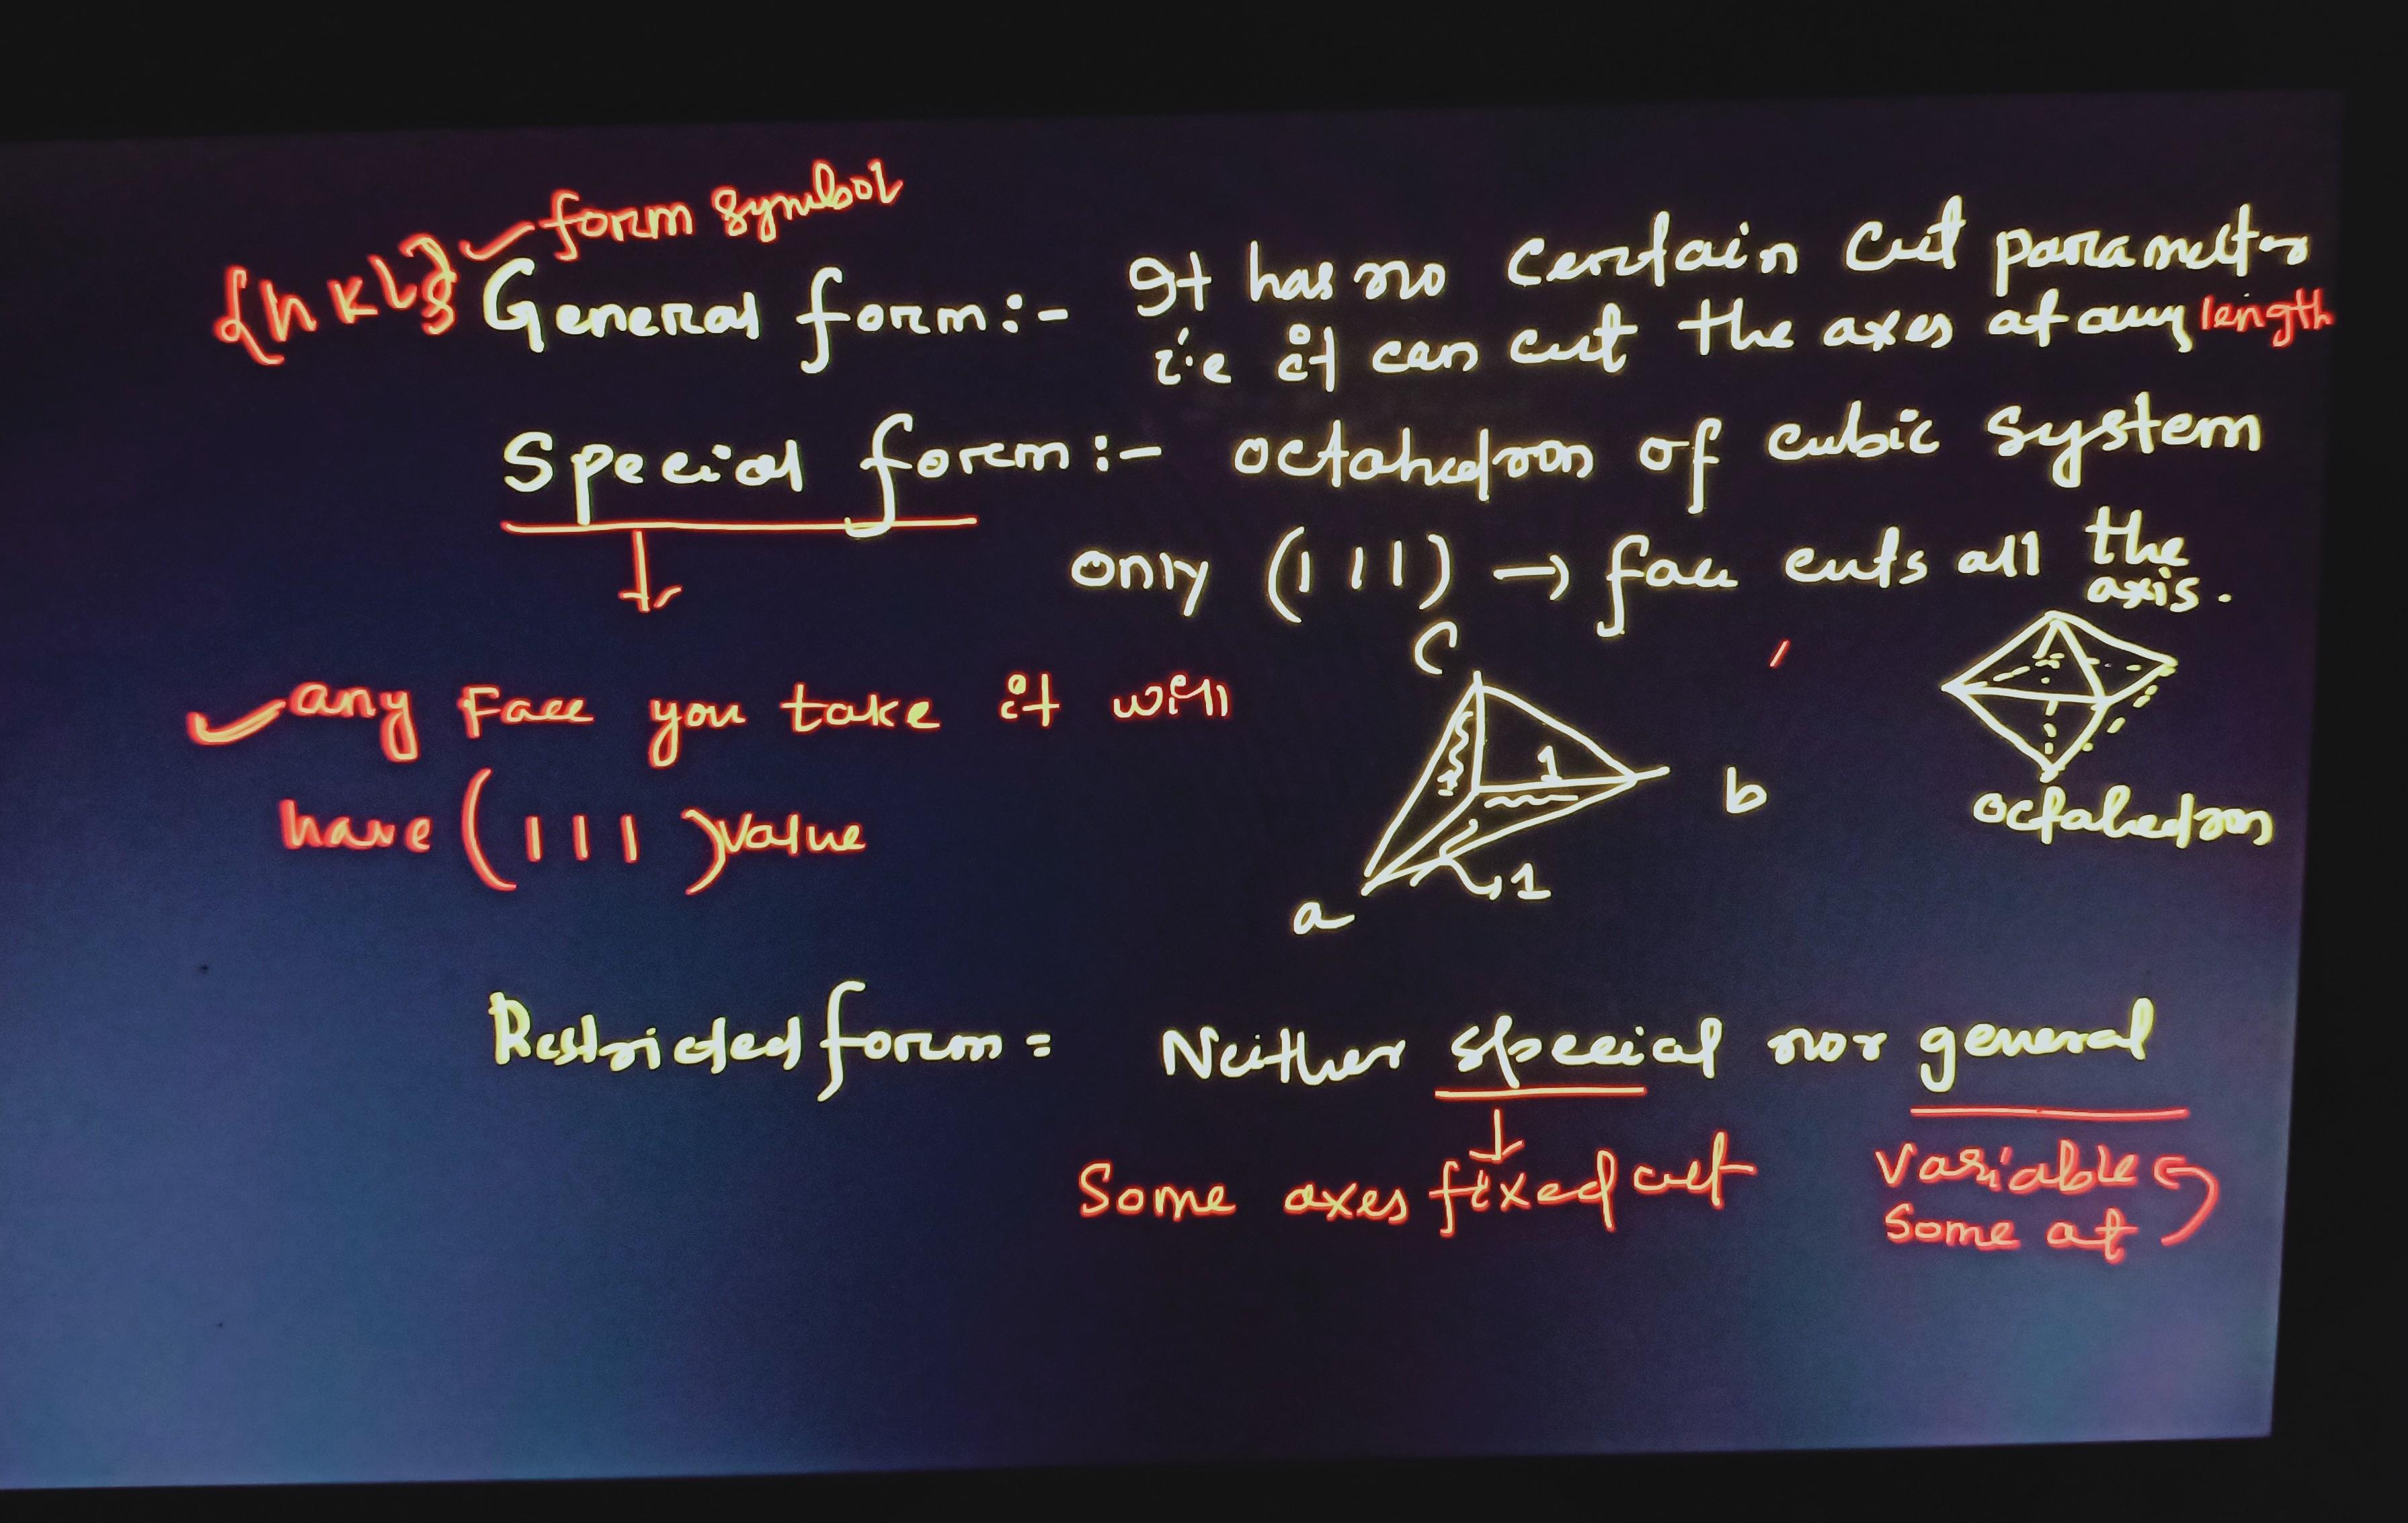 {hkl} form symbol
General form:- It has no certain cut parameter
i.e it can cut the axes at any length
Special form:- octahedron of cubic system
only (111) → face cuts all the
axis.
any Face you take it will
have (111) value
c
1
1
1
a
b
octahedron
Restricted form = Neither special nor general
Some axes fixed cut
variable
Some at